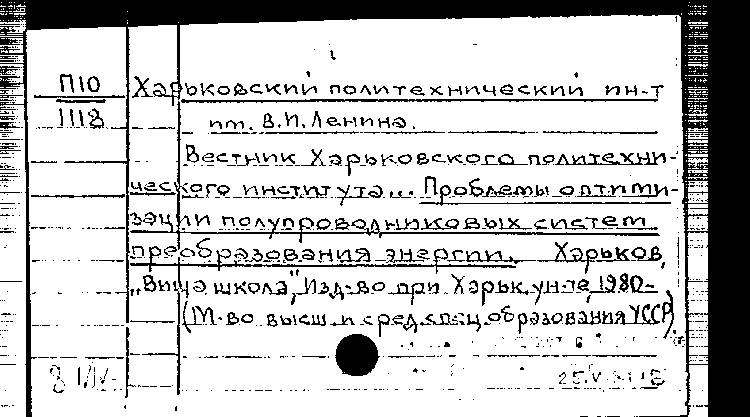 П10 Харьковский политехнический ин-т
1118 им. В.И.Ленина.
Вестник Харьковского политехни-
ческого института... Проблемы оптими-
зации полупроводниковых систем
преобразования энергии. Харьков,
„Вища школа", Изд-во при Харьк.ун-те, 1980-
(М-во высш. и сред.спец.образования УССР).